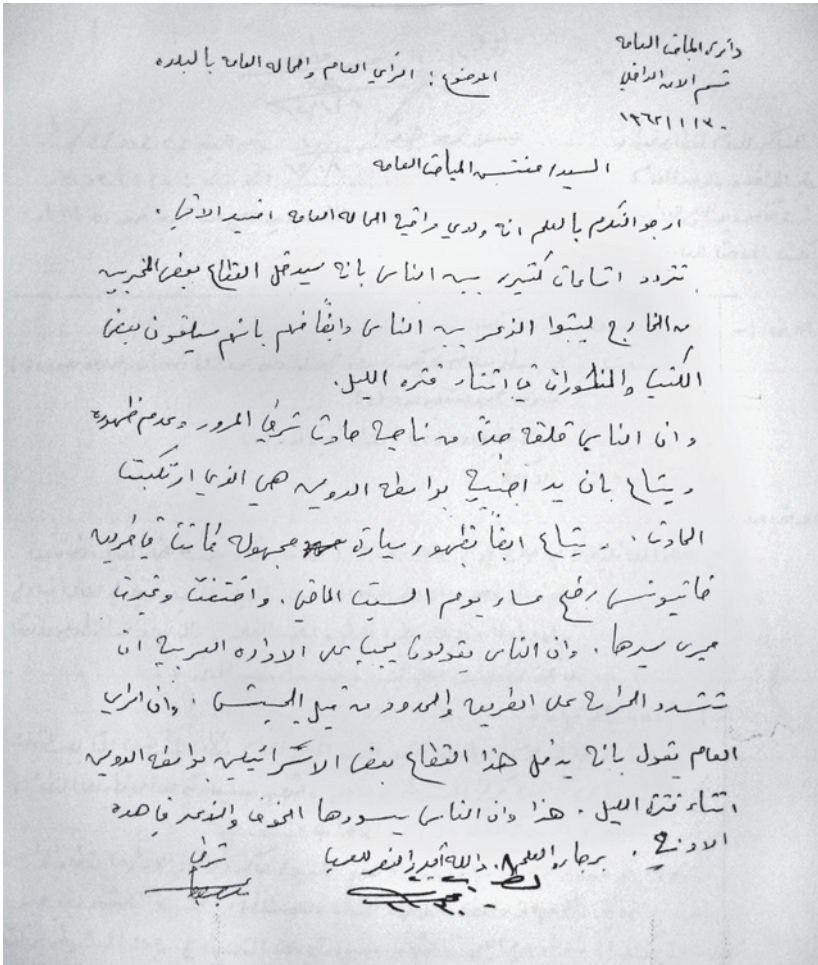 دائرة المباحث العامه
قسم الامن الداخلي
١٩٦٢/١/٣٠
الموضوع : الراي العام والحاله العامه بالبلده
السيد/ مفتش المباحث العامه
ارجو التكرم بالعلم انه ولدي مراقبة الحاله العامه افيد الاتي .
تتردد اشاعات كثيره بين الناس بانه سيدخل القطاع بعض المخربين
من الخارج ليبثوا الذعر بين الناس وايضاً منهم بانهم سيلقون بعض
الكتب والمنشورات في اثناء فتره الليل .
وان الناس قلقه جداً من ناحية حادث شرطي المرور وعدم ظهوره
ويشاع بان يد اجنبية بواسطه الدوس هي الذي ارتكبت
الحادث . ويشاع ايضاً بظهور سيارة مجهوله كانت في طريق
خانيونس رفح مساء يوم السبت الماضي . واختفت وغيرت
مجرى سيرها . وان الناس يقولون يجب على الاداره العربية ان
تشدد الحراسة على الطريق والحدود من قبل الجيش . وان الراي
العام يقول بانه يدخل هذا القطاع بعض الاسرائيلين بواسطه الدوس
اثناء فترة الليل . هذا وان الناس يسودها الخوف والذعر في هذه
الاونه . برجاء العلم . والله